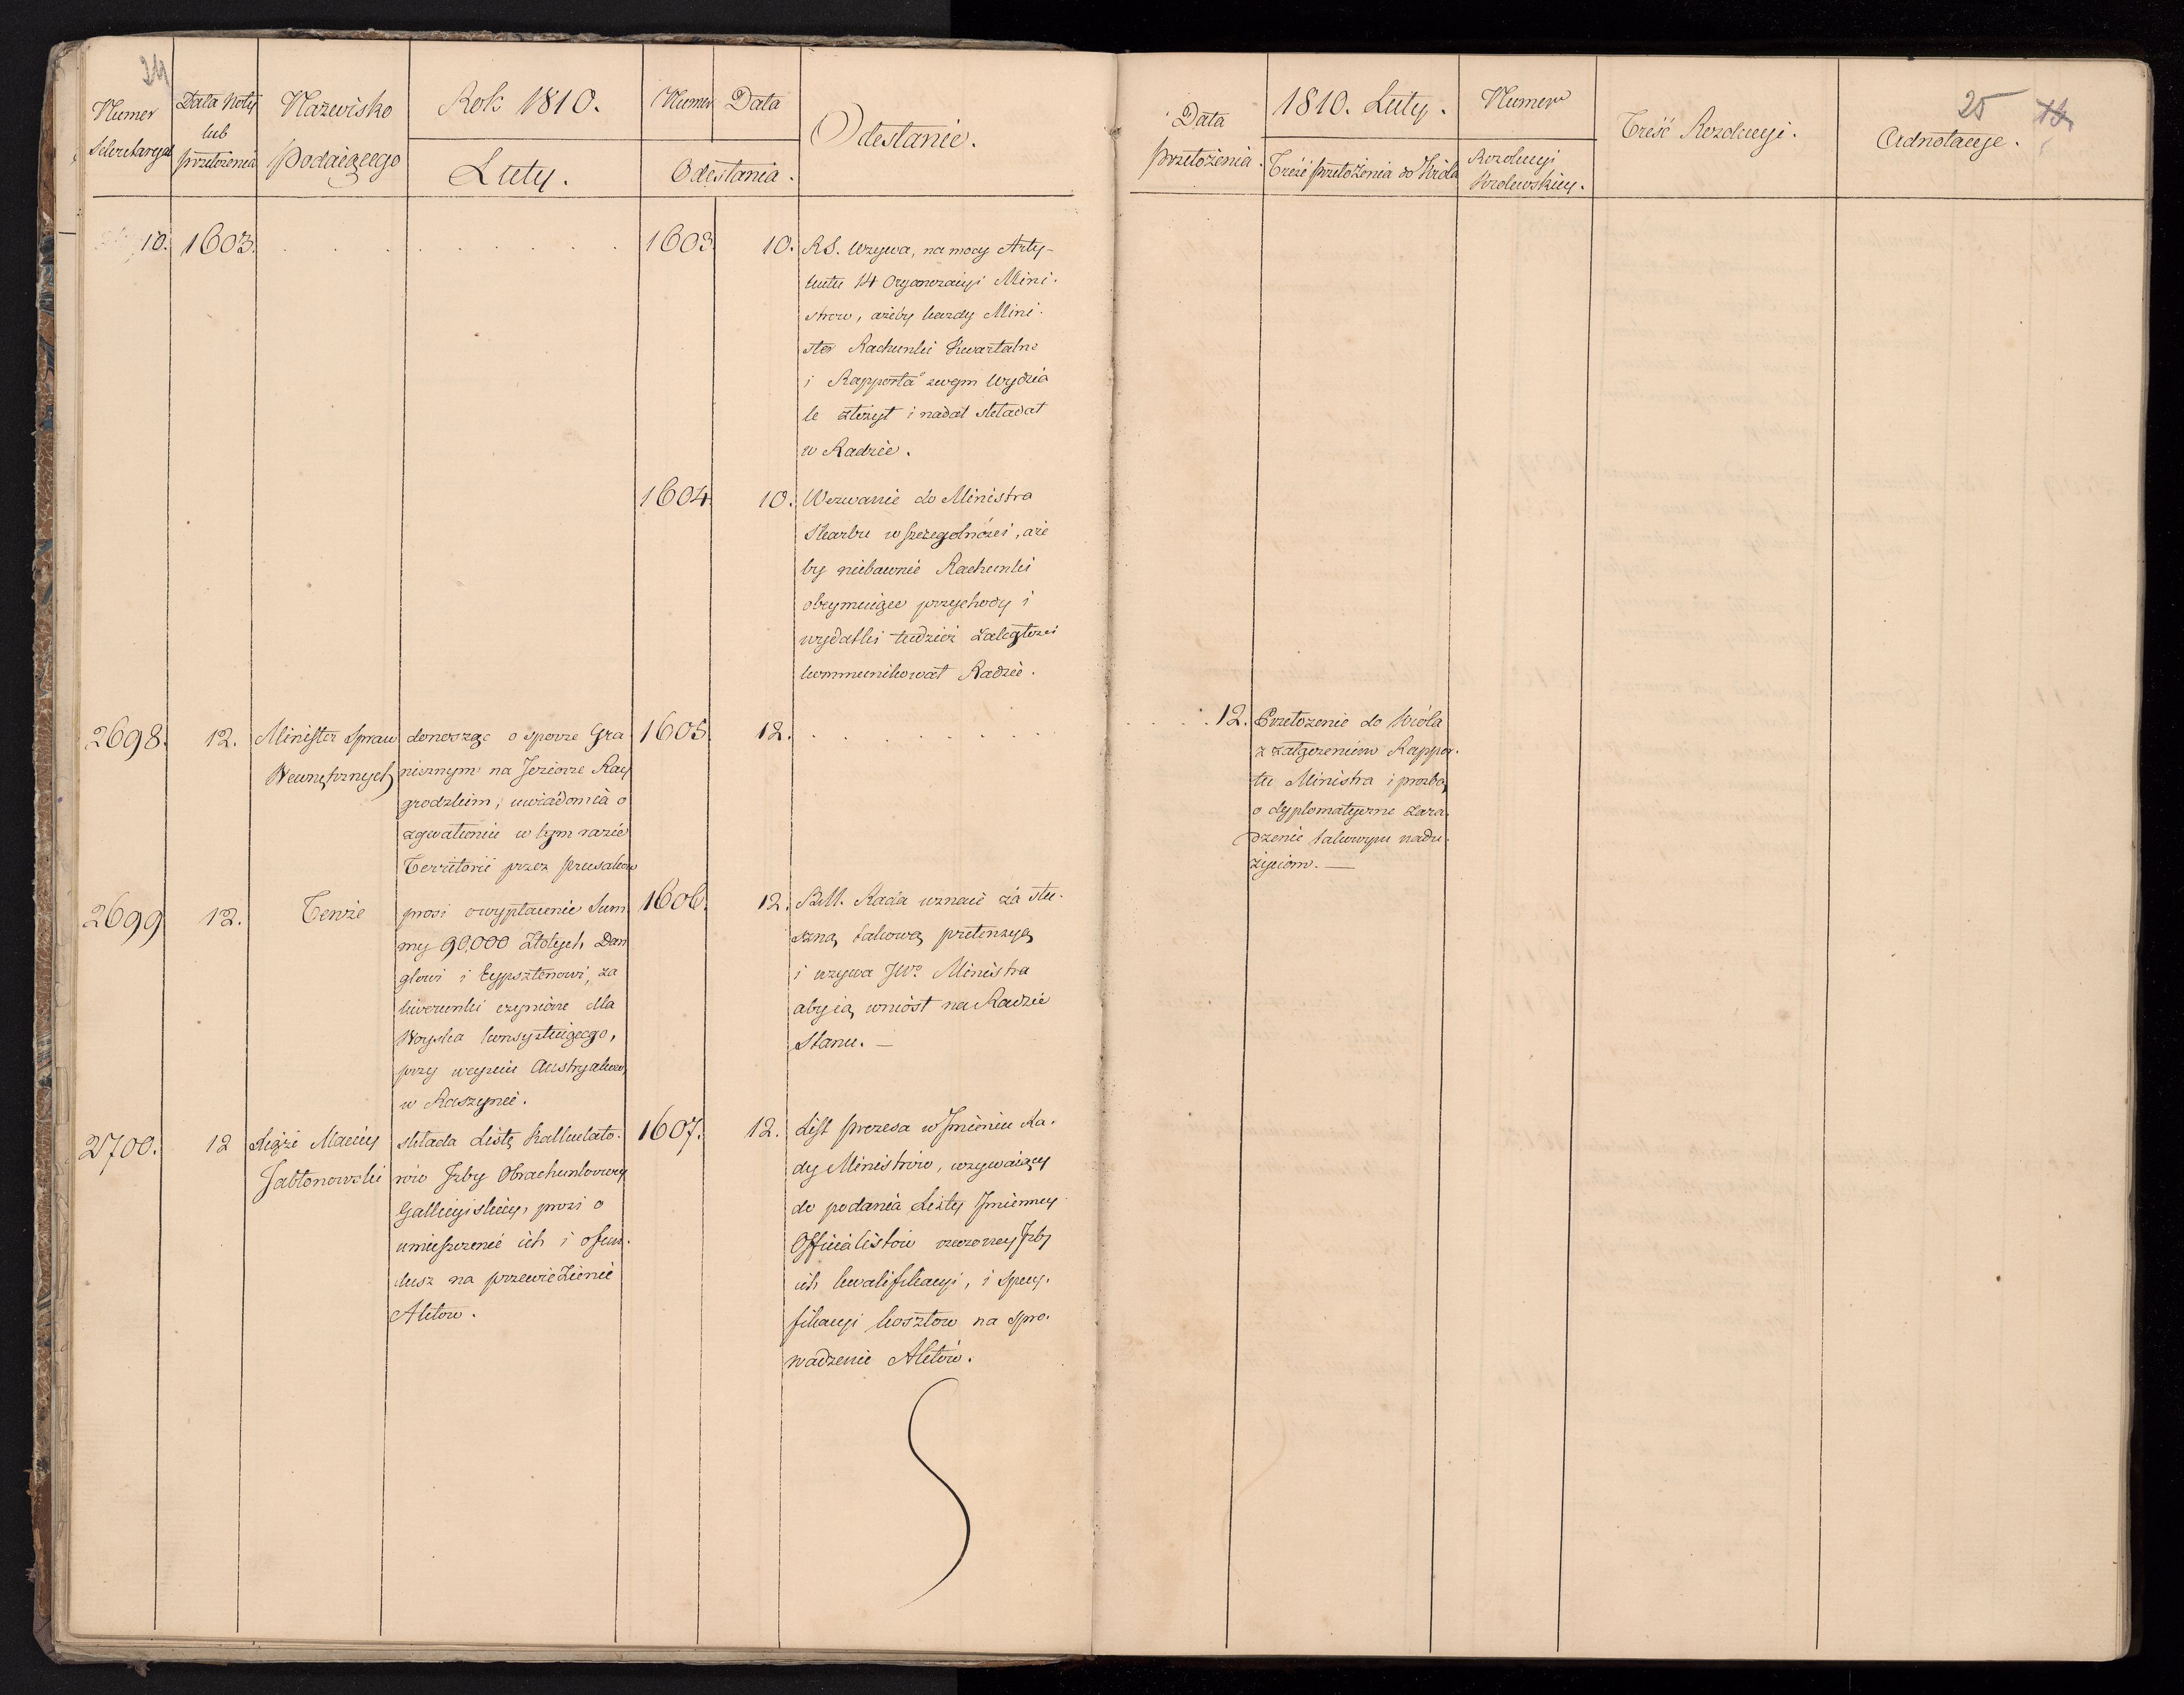 24
Numer
Sekretaryat
Data Noty
lub
przełożenia
Nazwisko
Podaiącego
Rok 1810.
Luty.
Numer Data
Odesłania.
Odesłanie.
10. 1603. 1603. 10.
RS. wzywa, na mocy Arty-
kułu 14 Organizacyi Mini-
strow, ażeby każdy Mini-
ster Rachunki Kwartalne
i Rapporta w swym Wydzia
le złożył i nadal składał
w Radzie.
1604. 10.
Wezwanie do Ministra
Skarbu w szczegolności, aże
by niebawnie Rachunki
obeymuiące przychody i
wydatki tudzież zaległości
kommunikował Radzie.
2698. 12. Minister Spraw
Wewnętrznych
donosząc o sporze Gra
nicznym na Jeziorze Ray
grodzkim, uwiadomia o
zgwałceniu w tym razie
Territorii przez Prusaków
1605. 12.
2699 12. Tenże
prosi o wypłacenie Sum
my 90,000 Złotych Dan
glowi i Eypsztenowi, za
liwerunki czynione dla
Woyska konsystuiącego,
przy weyściu Austryaków,
w Raszynie.
1606. 12.
RM. Rada uznaie za słu-
szną takową pretensyą
i wzywa JWo Ministra
aby ią wniosł na Radzie
Stanu. —
2700. 12 Xiąże Maciey
Jabłonowski
składa Listę Kalkulato-
row Izby Obrachunkowey
Gallicyiskiey, prosi o
umieszczenie ich i ofun-
dusz na przewiezienie
Aktow.
1607. 12.
List Prezesa w Imieniu Ra-
dy Ministrów, wzywaiący
do podania Listy Imienney
Officialistow rzeczoney Izby
ich kwalifikacyi, i specy-
fikacyi kosztow na spro-
wadzenie Aktów.
Data
Przełożenia.
1810. Luty.
Treść Przełożenia do Króla
Numer
Rezolucyi
Krolewskiey.
Treść Rezolucyi.
25
Adnotacye.
12. Przełożenie do Króla
z załączeniem Rappor-
tu Ministra i prozbą
o dyplomatyczne zara-
dzenie takowym nadu-
życiom. —